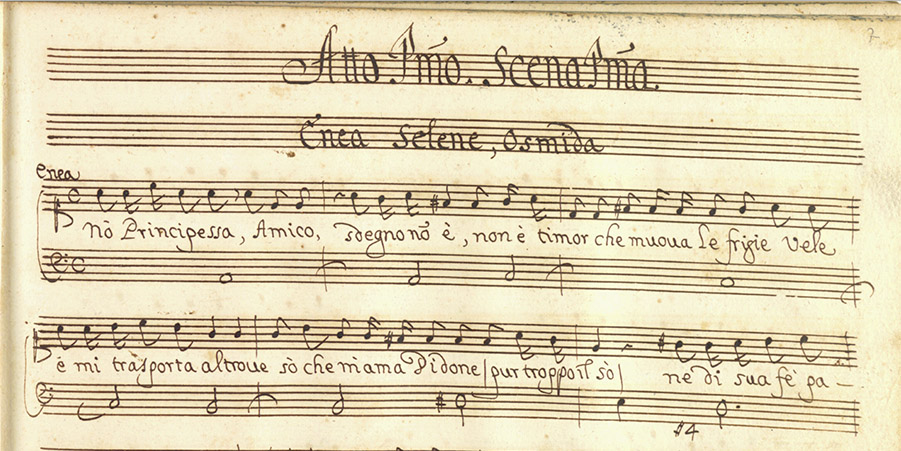 7
Atto Pm̃o. Scena Pm̃a.
Enea Selene, Osmida
Enea
Nò Principessa, Amico, sdegno nõ è, non è timor che muoua le frigie Vele
e mi trasporta altroue sò che m'ama Didone | pur troppo il sò | ne di sua fè pa-
#4